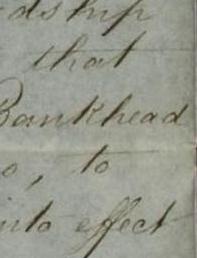 dship
that
Bankhead
o, to
into effect